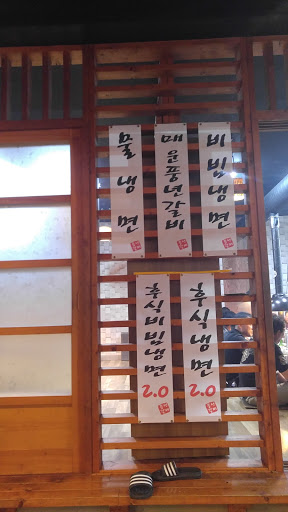 물냉면
매운풍년갈비
비빔냉면
후식비빔냉면 2.0
후식냉면 2.0